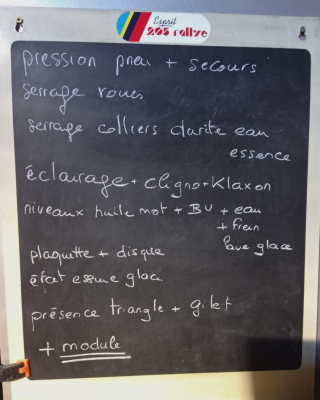 Esprit
205 rallye
pression pneu + secours
serrage roues
serrage colliers durite eau
essence
éclairage + cligno + Klaxon
niveaux huile mot + BV + eau
+ frein
lave glace
plaquette + disque
état essuie glace
présence triangle + gilet
+ module